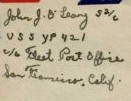 John J. O'Leary S2/c
U S S YP 421
c/o Fleet Post Office
San Francisco, Calif.